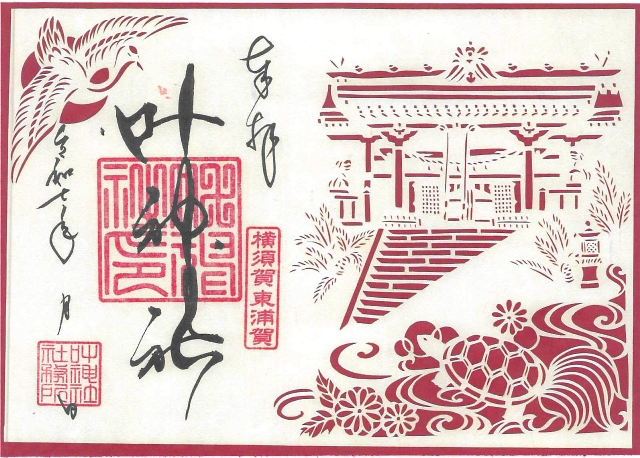 奉拝
叶神社
横須賀東浦賀
令和七年 月 日
叶神社社務所